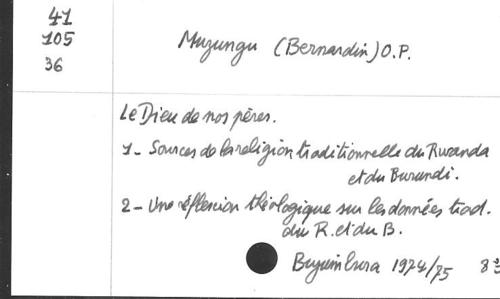 41
105
36
Muzungu (Bernardin) O.P.
Le Dieu de nos pères.
1- Sources de la religion traditionnelle du Rwanda
et du Burundi.
2- Une réflexion théologique sur les données trad.
du R. et du B.
Bujumbura 1974/75